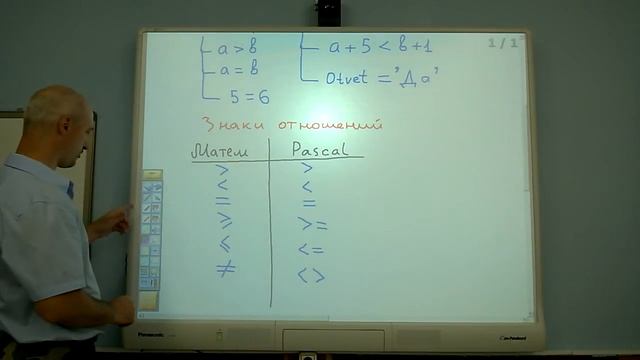 1/1
a > b
a + 5 < b + 1
a = b
Otvet = 'Да'
5 = 6
Знаки отношений
Матем Pascal
> >
< <
= =
≥ >=
≤ <=
≠ <>
Panasonic